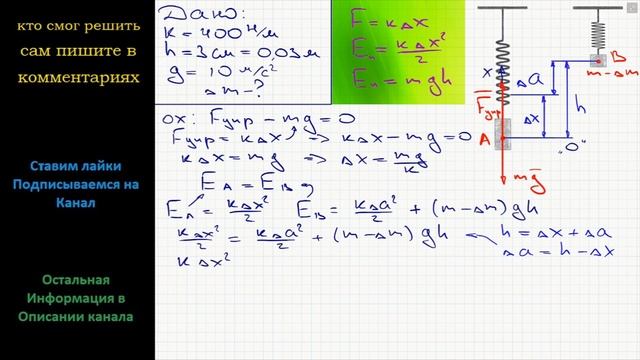 кто смог решить
сам пишите в
комментариях
Ставим лайки
Подписываемся на
Канал
Остальная
Информация в
Описании канала
Дано:
k = 400 Н/м
h = 3 см = 0,03 м
g = 10 м/с²
Δm - ?
F = kΔx
Eп = kΔx²/2
Eп = mgh
ox: Fупр - mg = 0
Fупр = kΔx => kΔx - mg = 0
kΔx = mg => Δx = mg/k
EA = EB
EA = kΔx²/2 EB = kΔa²/2 + (m-Δm)gh
kΔx²/2 = kΔa²/2 + (m-Δm)gh
h = Δx + Δa
Δa = h - Δx
kΔx²
x
Δa
B
m-Δm
Fупр
Δx
h
A
"0"
mg